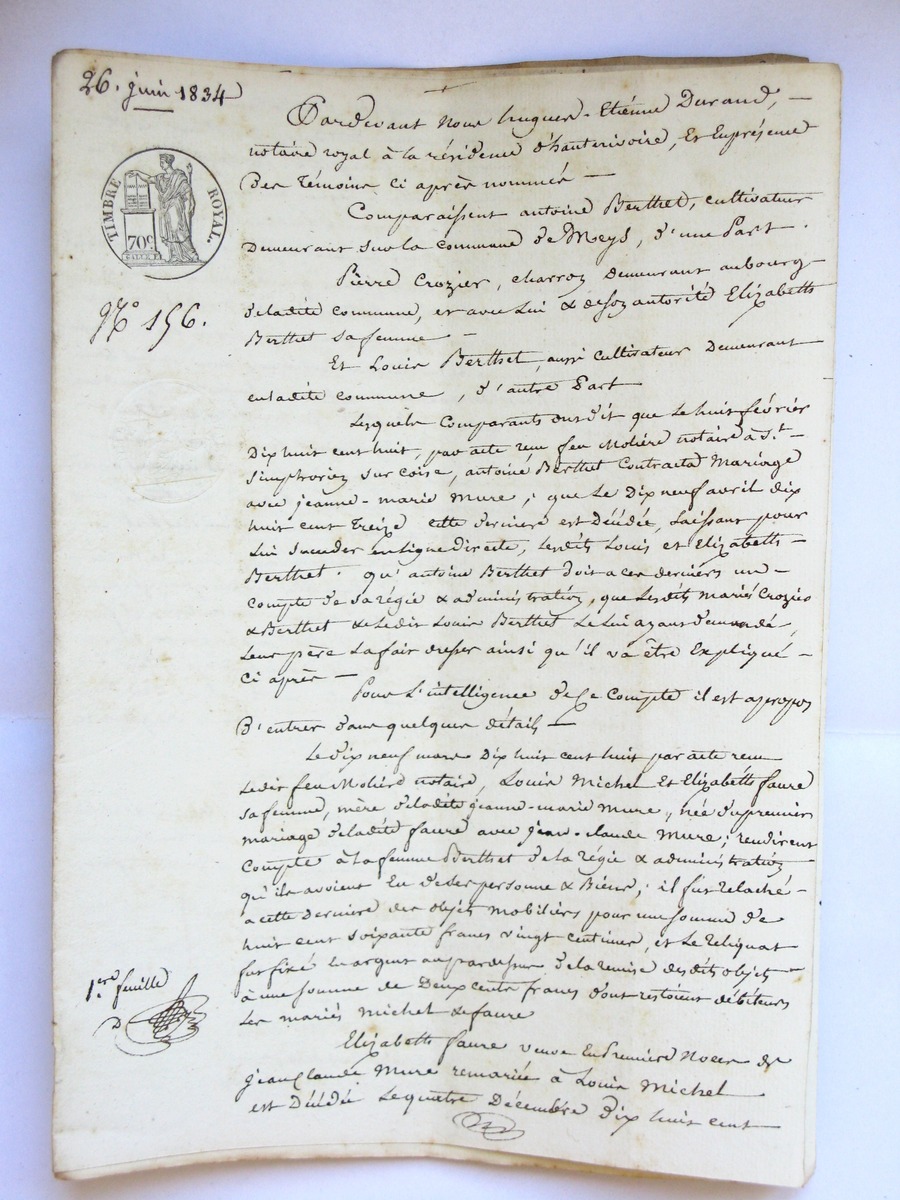 26. juin 1834
TIMBRE ROYAL.
70c
N° 156.
Pardevant Nous hugues-Etiénne Durand,
notaire royal à la résidence d'hauterivoire, Et En présence
Des témoins ci après nommés
Comparaissent antoine Berthet, cultivateur
Demeurant sur la commune de Meys, d'une Part.
Pierre Crozier, charron Demeurant au bourg
de ladite commune, et avec Lui & de son autorité Elizabeth
Berthet sa femme
Et Louis Berthet, aussi cultivateur Demeurant
en ladite commune, d'autre Part
Lesquels Comparants ont dit que Le huit février
Dix huit cent huit, par acte reçu feu Molière notaire à St.
Simphorien sur Coise, antoine Berthet Contracta Mariage
avec jeanne-marie Mure; que Le Dix neuf avril dix
huit cent Treize cette derniere est Décédée, Laissant pour
Lui Succeder en Ligne Directe, Lesdits Louis et Elizabeth
Berthet. qu'antoine Berthet doit a ces derniérs un
Compte de sa régie & administration, que Lesdits mariés Crozier
& Berthet & Ledit Louis Berthet Le Lui ayant demandé,
Leur père La fait dresser ainsi qu'il va être Expliqué
ci après
Pour L'intelligence de Ce Compte il est apropos
D'entrer dans quelques détails
Le dix neuf mars Dix huit cent huit par acte reçu
Ledit feu Molière notaire, Louis Michel Et Elizabeth faure
sa femme, mère de ladite jeanne-marie Mure, née du premier
mariage de ladite faure avec jean-claude Mure; rendirent
Compte à La femme Berthet de La régie & administration
qu'ils avoient Eu de ses personne & Biens; il fut relaché
a cette Derniere des objets mobiliers pour une somme de
huit cent soixante francs vingt centimes, et Le Reliquat
fut fixé En argent au pardessus de La remise desdits objets
à une somme de Deux cents francs dont restoient débiteurs
Les mariés michel & faure
Elizabeth faure veuve En Premiere Noces de
jean Claude Mure remariée à Louis Michel
est Décédée Le quatre Décembre Dix huit cent
1.ere feuille
D